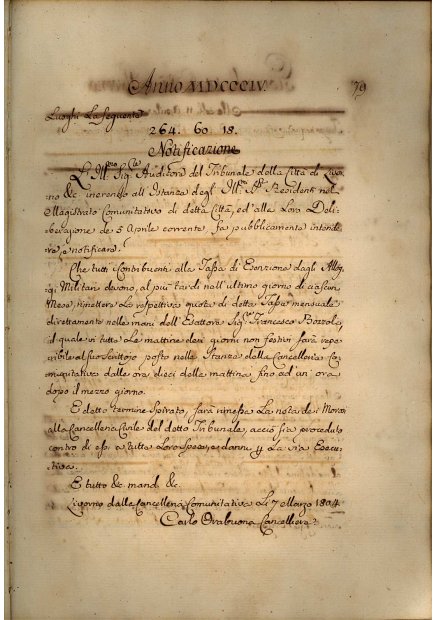 Anno MDCCCIV.
79
Luoghi La seguente
264. 60 18.
Notificazione
L'Ill.mo Sig.re Auditore del Tribunale della Città di Livor
no &c. inerendo all'Istanza degl' Ill.mi SS.ri Residenti nel
Magistrato Comunitativo di detta Città, ed' alla Loro Deli-
berazione de' 5 Aprile corrente, fa pubblicamente intende
re, e notificare.
Che tutti i Contribuenti alla Tassa di Esenzione dagli Allog
gi Militari devono, al più tardi nell'ultimo giorno di ciascun
Mese, rimettere la respettiva quota di detta Tassa mensuale
direttamente nelle mani dell'Esattore Sig.re Francesco Bozzoli,
il quale in tutte Le mattine dei giorni non festivi sarà repe-
ribile al suo Scrittojo posto nelle Stanze della Cancelleria Co-
munitativa dalle ore dieci della mattina fino ad un' ora
dopo il mezzo giorno.
E detto termine spirato, sarà rimessa La nota dei Morosi
alla Cancelleria Civile del detto Tribunale, acciò sia proceduto
contro di essi a tutte Loro Spese, e danni, per La via Esecu-
tiva.
E tutto &c. mand. &c.
Livorno dalla Cancelleria Comunitativa Li 7 Marzo 1804
Carlo Cancelliere